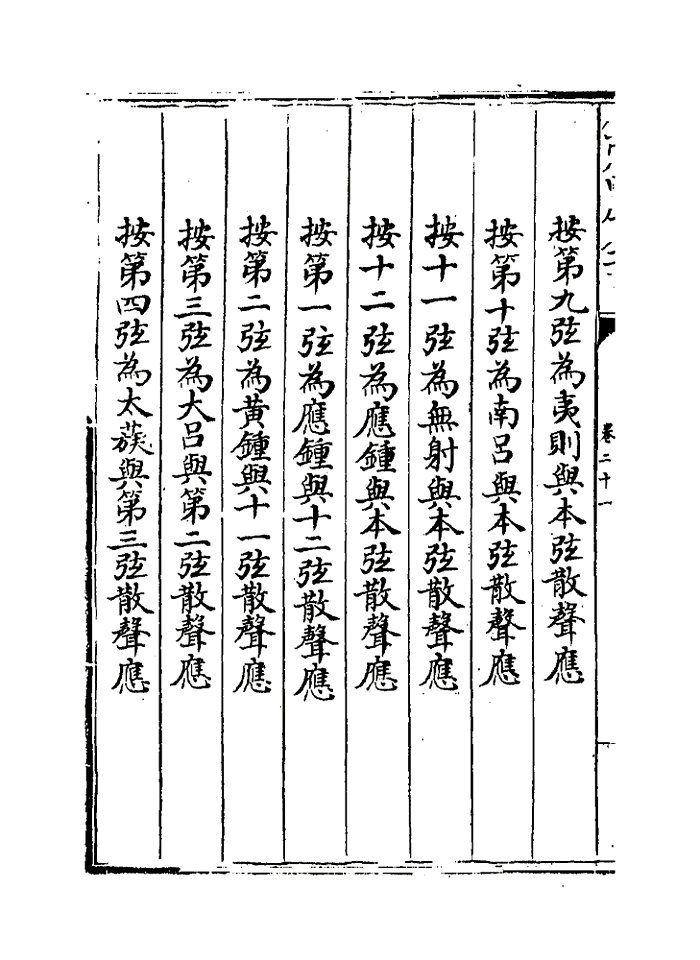 按第九弦為夷則與本弦散聲應
按第十弦為南呂與本弦散聲應
按十一弦為無射與本弦散聲應
按十二弦為應鍾與本弦散聲應
按第一弦為應鍾與十二弦散聲應
按第二弦為黃鍾與十一弦散聲應
按第三弦為大呂與第二弦散聲應
按第四弦為太蔟與第三弦散聲應
卷二十一